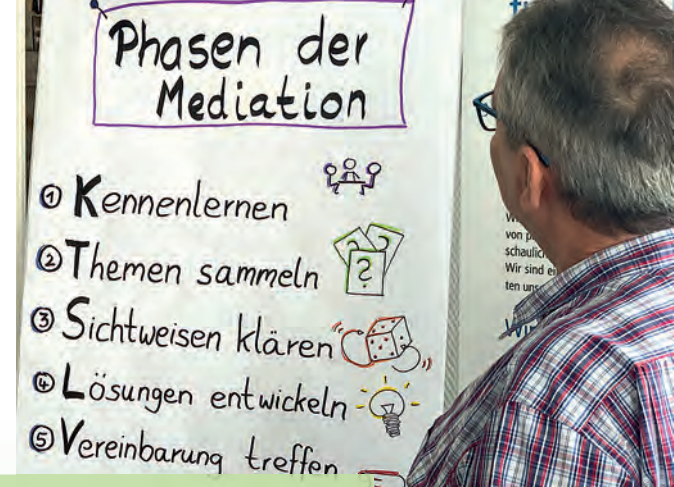 Phasen der
Mediation
① Kennenlernen
② Themen sammeln
? ?
?
③ Sichtweisen klären
④ Lösungen entwickeln
⑤ Vereinbarung treffen
von
Wir sind